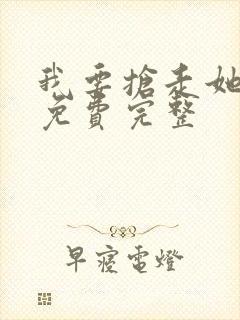 我要搶走她
免費完整
早寢電燈